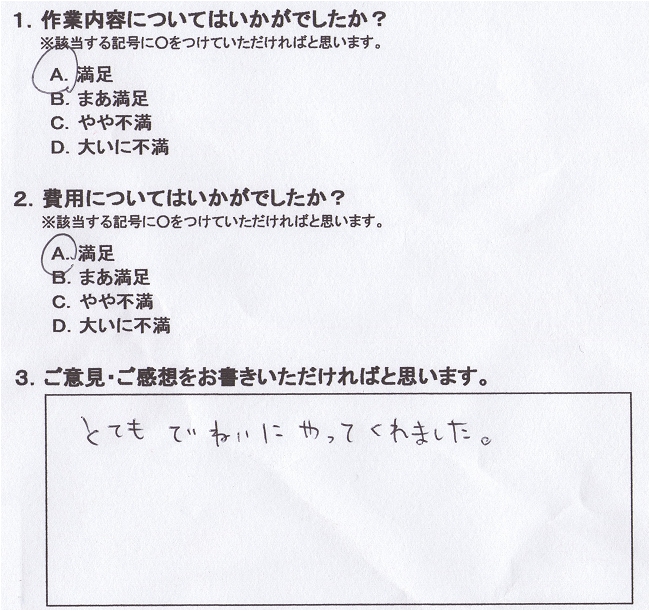 1. 作業内容についてはいかがでしたか？
※該当する記号に〇をつけていただければと思います。
A. 満足
B. まあ満足
C. やや不満
D. 大いに不満
2. 費用についてはいかがでしたか？
※該当する記号に〇をつけていただければと思います。
A. 満足
B. まあ満足
C. やや不満
D. 大いに不満
3. ご意見・ご感想をお書きいただければと思います。
とても でねいに やってくれました。